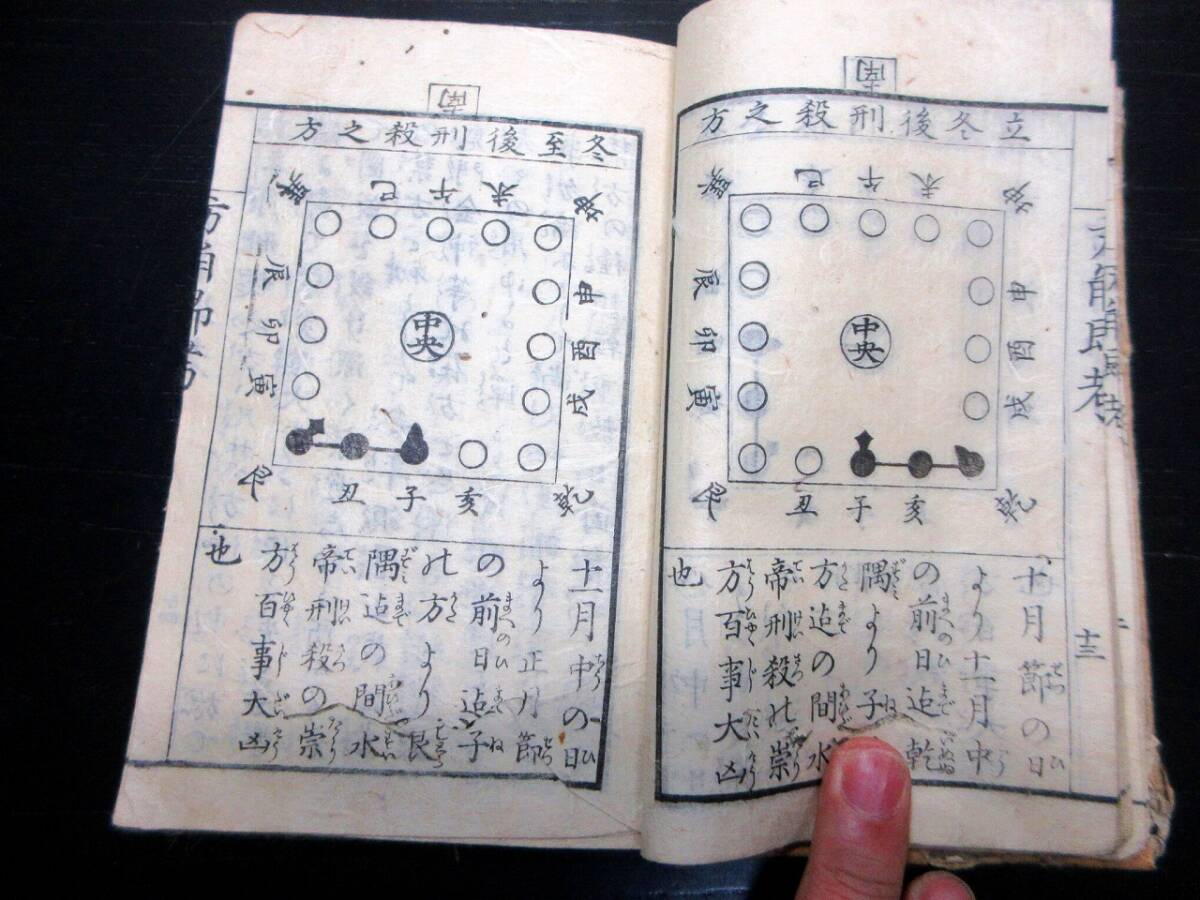 南
立冬後刑殺之方
巽 巳 午 未 坤
辰 申
卯 酉
寅 戌
中央
艮 丑 子 亥 乾
十月節の日
より十一月中
の前日迠乾
隅より子
方迠の間水
帝刑殺の祟
方百事大凶
也
十三
南
冬至後刑殺之方
巽 巳 午 未 坤
辰 申
卯 酉
寅 戌
中央
艮 丑 子 亥 乾
十一月中の日
より正月節
の前日迠子
の方より艮
隅迠の間水
帝刑殺の祟
方百事大凶
也